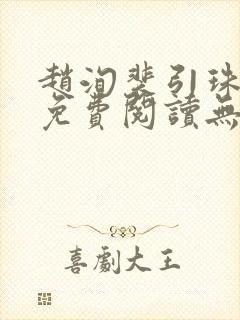 趙洵裴引珠
免費閱讀無
喜劇大王